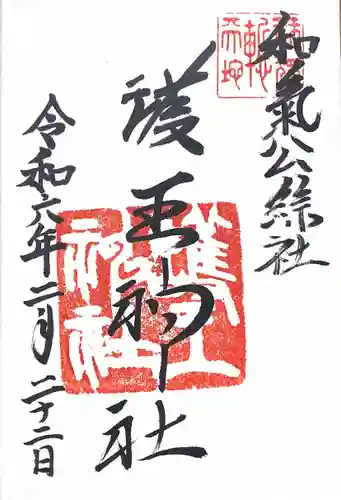 和氣公綜社
護王神社
令和六年二月二十二日
護王
神社